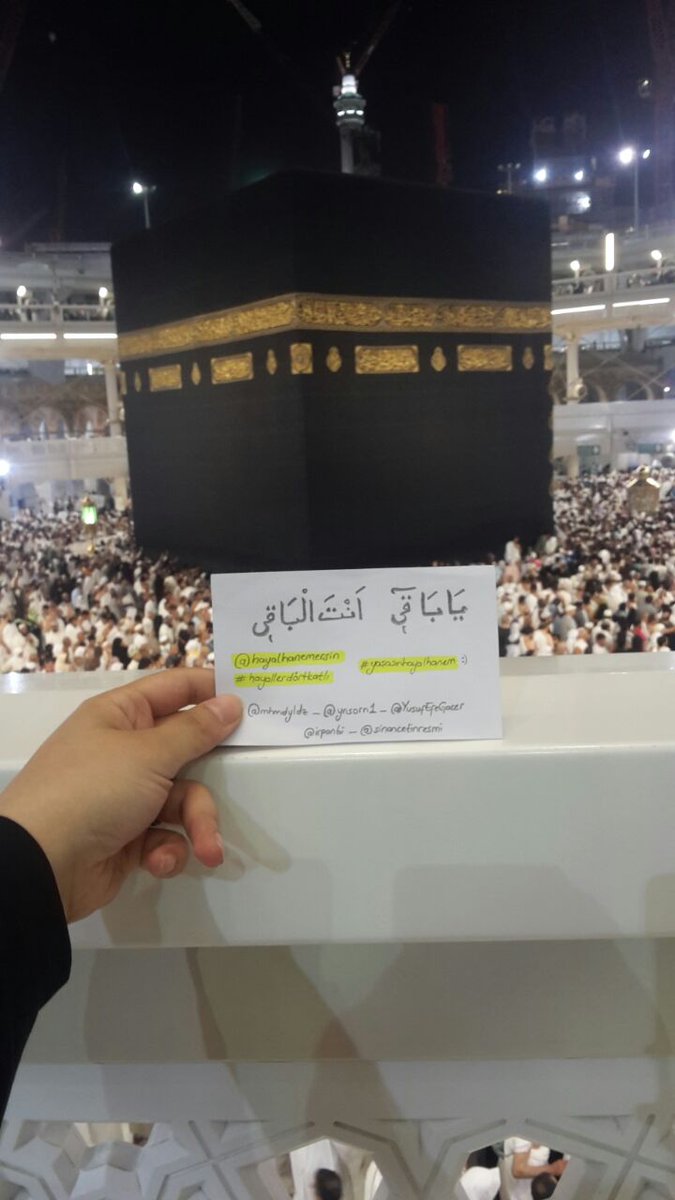 يَا بَاقۤي اَنْتَ الْبَاقۤي
@hayalhanemersin #yasasınhayalhanem :)
#hayallerdörtkatlı
@mtmdyldz _ @ynsorn1 _ @YusufEfeGocer
@irpanbi _ @sinancetinresmi